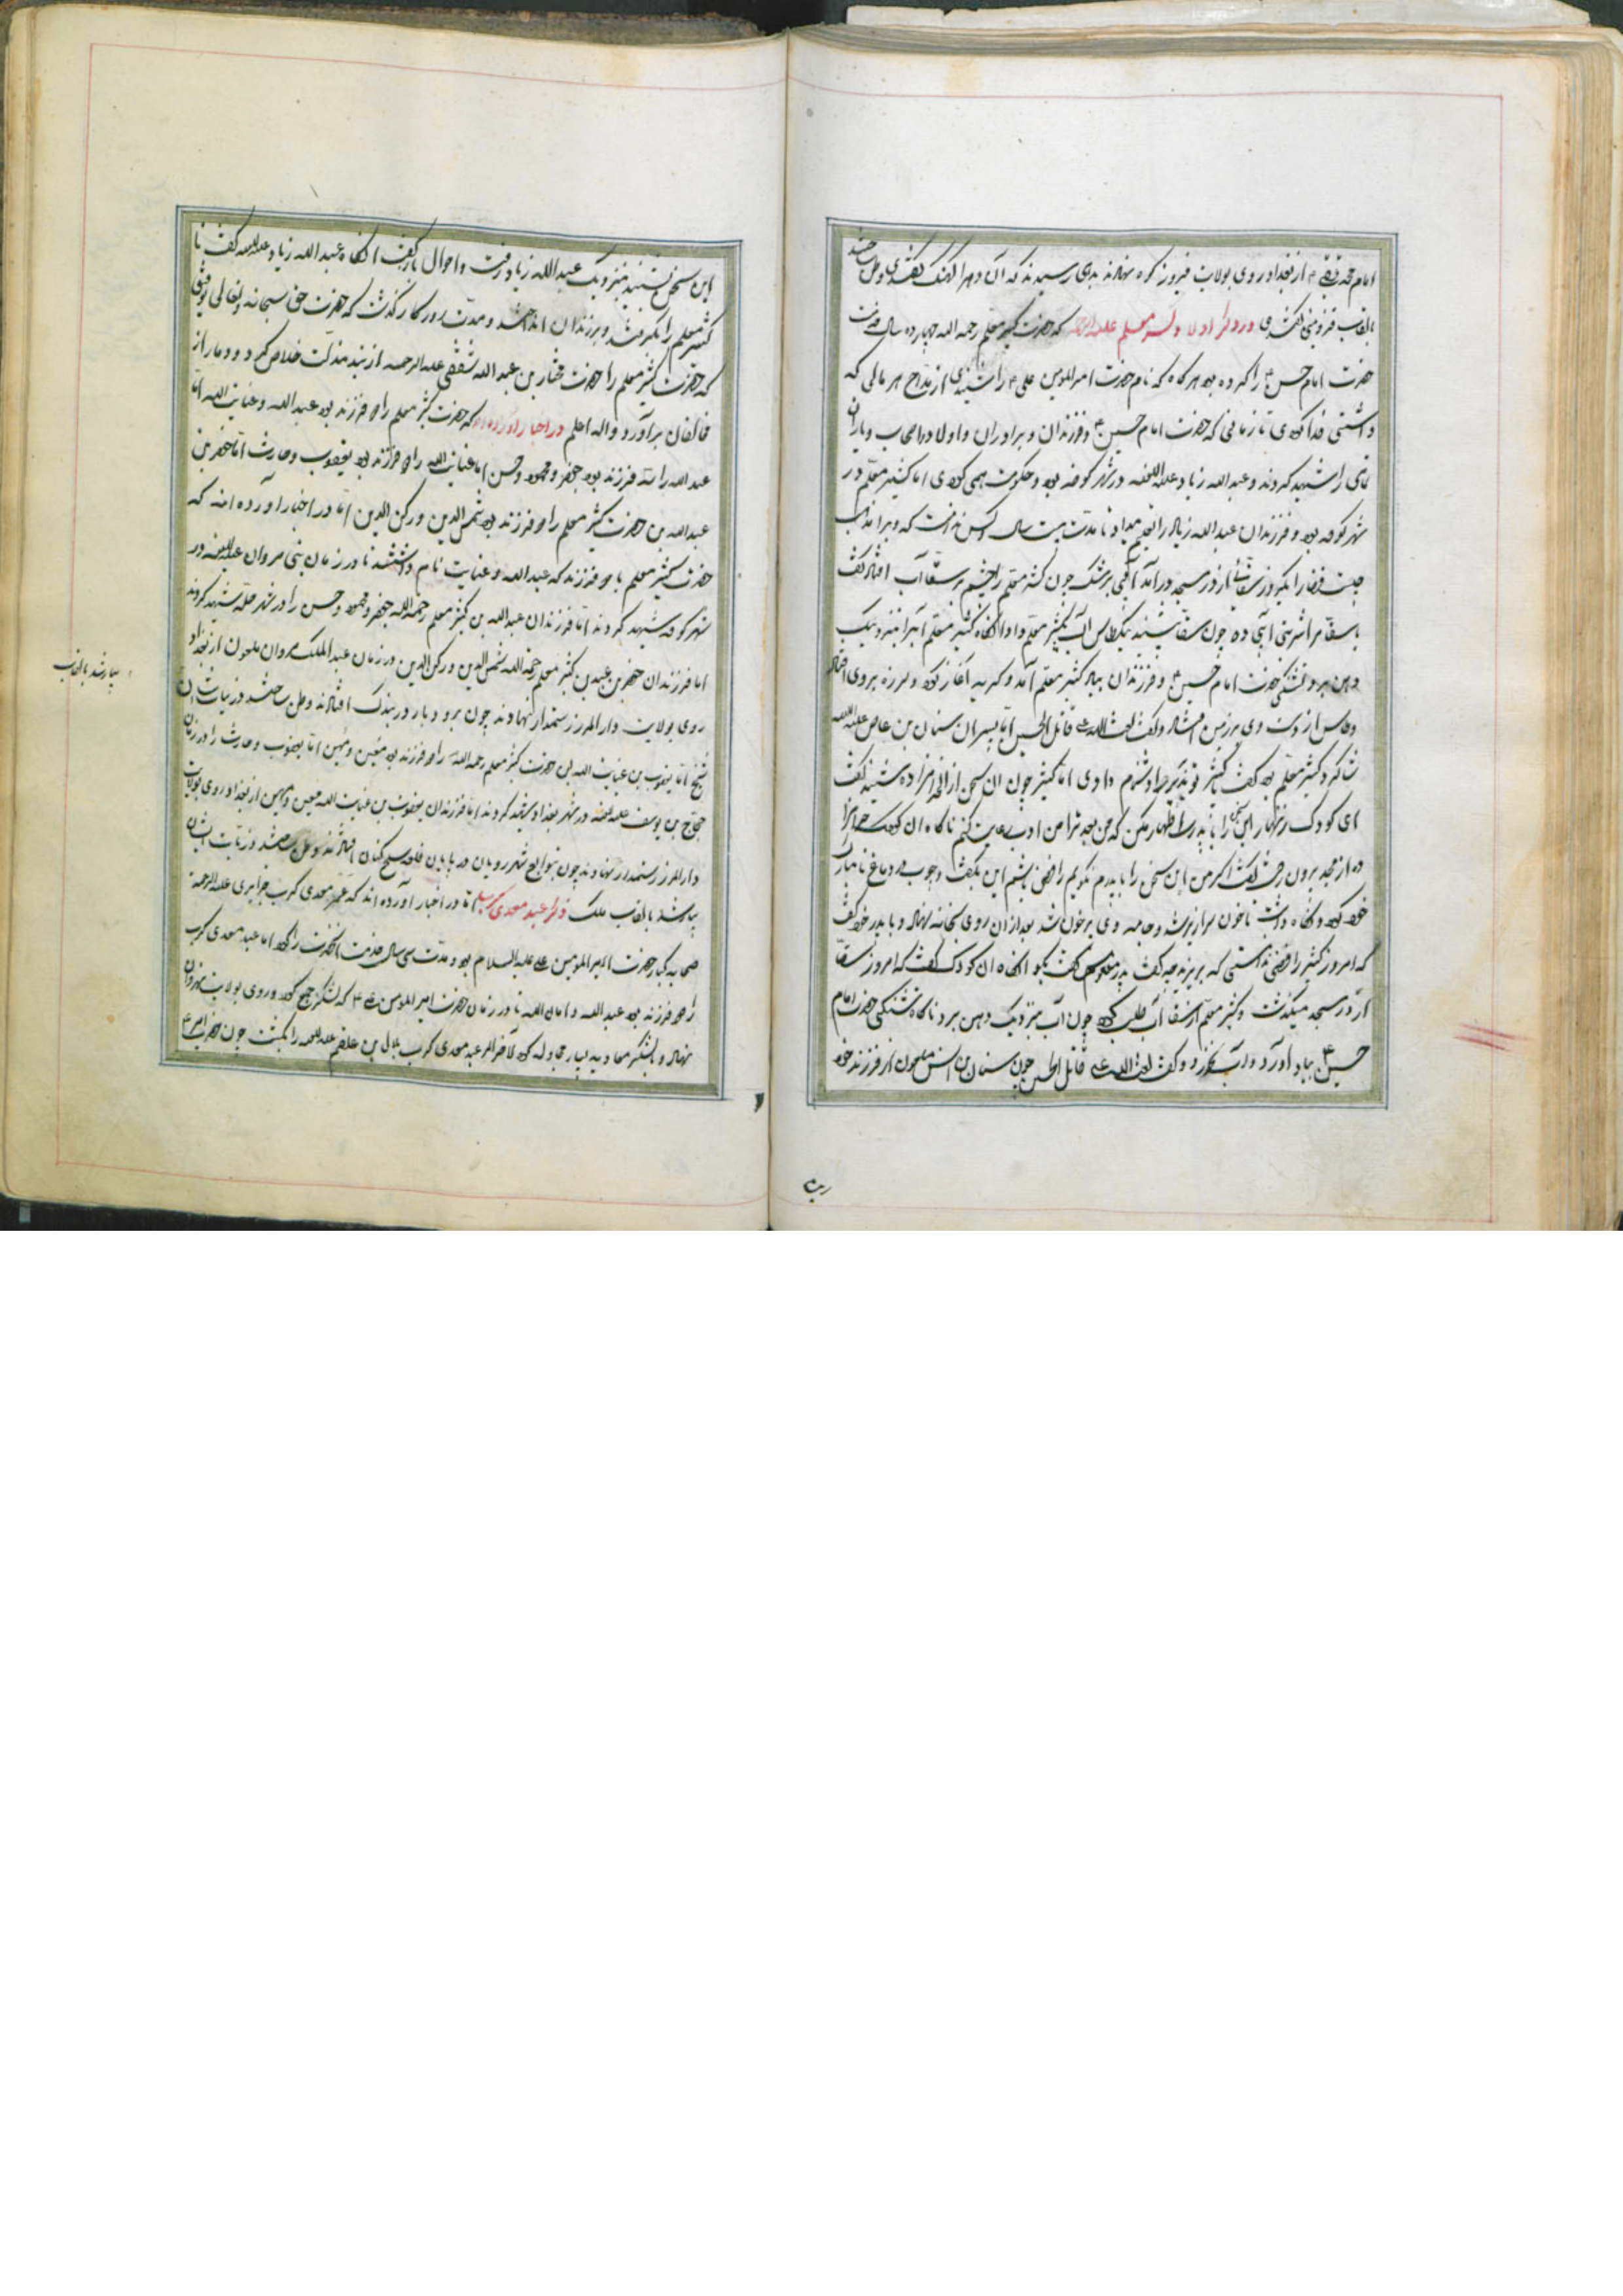 امام محمد تقی ۴ از بغداد روی بولایت فیروز کوه نهادند بدی رسیدند که آن دهرا
بالقاب قزوینی گفتندی در ذکر اولاد کثیر معلم علیه الرحمه که حضرت کثیر معلم رحمه الله چهارده سال خدمت
حضرت امام حسن ۴ را کرده بود هر گاه که نام حضرت امیر المومنین علی ۴ را شنیدی از مداح هر مالی که
داشتی فدا کردی تا زمانی که حضرت امام حسین ۴ و فرزندان و برادران و اولاد و اصحاب و یاران
را شهید کردند و عبد الله زیاد علیه اللعنه در شهر کوفه بود و حکومت همی کردی اما کثیر معلم در
شهر کوفه بود و فرزندان عبد الله زیاد را تعلیم میداد تا مدت بیست سال کس ندانست که ویرا مذهب
چیست قضا را یکروز سقائی از در مسجد در آمد آبی پرشک چون کثیر معلم را چشم بر سقا آب افتاد گفت
یا سقا مرا شربتی آبی ده چون سقا بشنید یکطاس آب بکثیر معلم داد آنگاه کثیر معلم آبرا بنزدیک
دهن برد و تشنگی حضرت امام حسین ۴ و فرزندان بیاد کثیر معلم آمد و گریه آغاز کرد و لرزه بروی افتاد
و طاس از دست وی بر زمین افتاد و گفت لعنت الله علی قاتل الحسین اما پسران سنان بن عاص علیه اللعنه
شاگرد کثیر معلم بود گفت یا کثیر تو پدر مرا دشنام دادی اما کثیر چون این سخن از آن حرامزاده شنید گفت
ای کودک زنهار این سخن را با پدرت اظهار مکن که من بعد ترا من ادب رعایت کنم ناگاه آن کودک حرامزا
ده از مسجد برون رفت گفت اگر من این سخن را با پدرم نگویم رافضی باشم این بگفت و چوب در دماغ نابکار
خود کرد و نگاه داشت تا خون سرازیر شد و جامه وی پر خون شد بعد از آن روی بخانه نهاد و با پدر خود گفت
که امروز کثیر رافضی ندانستی که بریزید چه گفت پدر ملعونش گفت بگو آنگاه آن کودک گفت که امروز سقا
از در مسجد میگذشت و کثیر معلم از سقا آب طلب کرد چون آب بنزدیک دهن برد ناگاه تشنگی حضرت امام
حسین ۴ بیاد آورد و آب نخورد و گفت لعنت الله علی قاتل الحسین چون سنان بن انس ملعون از فرزند خود
این سخن بشنید بنزدیک عبد الله زیاد رفت و احوال باز گفت آنگاه عبد الله زیاد علیه اللعنه گفت تا
کثیر معلم را بگرفتند و بزندان انداختند و مدت روزگار گذشت که حضرت حق سبحانه و تعالی توفیق
که حضرت کثیر معلم را حضرت مختار بن عبد الله ثقفی علیه الرحمه از بند مذلت خلاص کرد و دمار از
مخالفان برآورد والله اعلم در اخبار آورده اند که حضرت کثیر معلم را دو فرزند بود عبد الله و عنایت الله اما
عبد الله را سه فرزند بود جعفر و محمود و حسن اما عنایت الله را دو فرزند بود یعقوب و حارث اما جعفر بن
عبد الله بن حضرت کثیر معلم را دو فرزند بود شمس الدین و رکن الدین اما در اخبار آورده اند که
حضرت کثیر معلم با دو فرزند که عبد الله و عنایت نام داشتند تا در زمان بنی مروان علیه اللعنه در
شهر کوفه شهید کردند اما فرزندان عبد الله بن کثیر معلم رحمة الله جعفر و محمود و حسن را در شهر حله شهید کردند
اما فرزندان جعفر بن عبد بن کثیر معلم رحمة الله شمس الدین و رکن الدین در زمان عبد الملک مروان ملعون از بغداد
روی بولایت دار المرز رستمدار نهادند چون بر و دیار دربندک افتادند وطن ساختند
شیخ اما یعقوب بن عنایت الله بن حضرت کثیر معلم رحمه الله را دو فرزند بود معین و مبین اما یعقوب و حارث را در زمان
حجاج بن یوسف علیه اللعنه در شهر بغداد شهید کردند اما فرزندان یعقوب بن عنایت الله معین و مبین از بغداد روی بولایت
دار المرز رستمدار نهادند چون بتوابع شهر رویان در پایان قلعه کنان افتادند وطن ساختند و زیات ایشان
بیا رشد بالقاب ملک ذکر عبد معدی کرب اما در اخبار آورده اند که عمر معدی کرب جزایری علیه الرحمه
صحابه کبار حضرت امیر المومنین علی علیه السلام بود و مدت سی سال خدمت آنحضرت را کرد اما عبد معدی کرب
را دو فرزند بود عبد الله و امان الله تا در زمان حضرت امیر المومنین علی ۴ که لشکر جمع کرد و روی بولایت نهروان
نهاد و با لشکر معاویه بسیار مجادله کرد لا آخر الامر عبد معدی کرب بلال بن علقم علیه اللعنه را بکشت چون حضرت امیر ۴
بیا رشد بالقاب